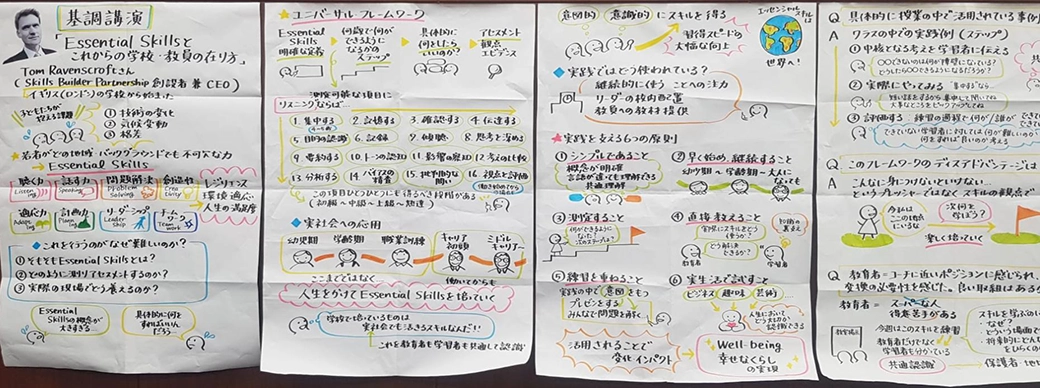 基調講演
「Essential Skillsと
これからの学校・教員の在り方」
Tom Ravenscroftさん
(Skills Builder Partnership 創設者 兼 CEO)
イギリス(ロンドン)の学校から始まった
子どもたちが
抱える課題
① 技術の変化
② 気候変動
③ 格差
★若者がどの地域・バックグラウンドでも不可欠な力
Essential Skills
聴く力
Listening
話す力
Speaking
問題解決
Problem Solving
創造性
Creativity
適応力
Adapting
計画力
Planning
リーダーシップ
Leadership
チームワーク
Teamwork
レジリエンス
環境適応
人生の満足度
◆これを行うのがなぜ難しいのか?
① そもそもEssential Skillsとは?
② どのように測りアセスメントするのか?
③ 実際の現場でどう養えるのか?
Essential
Skillsの概念が
大きすぎる
具体的に何を
すればいいん
だろう…
★ユニバーサルフレームワーク
Essential
Skills
明確な定義
何段で何が
できるように
なるかの
ステップ
具体的に
何をしたら
いいのか?
アセスメント
観点
エビデンス
測定可能な項目に
リスニングならば
1. 集中する
2. 記憶する
3. 確認する
4. 伝達する
5. 目的の認識
6. 記録
7. 傾聴
8. 思考を深める
9. 要約する
10. トーンの認知
11. 影響の察知
12. 考えの比較
13. 分析する
14. バイアスの
精査
15. 批判的な
問い
16. 視点と評価
この項目ひとつひとつにも得るべき段階がある
(初級〜中級〜上級〜熟達)
◆実社会への応用
幼児期
学齢期
職業訓練
キャリア
初頭
ミドル
キャリアー
ここまでではなく
働いてからも
人生をかけてEssential Skillsを培っていく
学校で培っているものは
実社会でも活きるスキルなんだ!!
これを教育者も学習者も共通して認識
意図的
意識的にスキルを得る
習得スピードの
大幅な向上
エッセンシャル
スキルは
世界へ!
◆実践ではどう使われている?
継続的に使うことへの注力
リーダーの校内配置
教員への教材提供
★実践を支える6つの原則
① シンプルであること
概念が明確
言語が違っても理解できる
共通理解
② 早く始め、継続すること
幼少期〜学齢期〜大人に
なっても
③ 測定すること
何ができるように
なった?
次のステップは?
④ 直接教えること
実際にスキルをどう
使うか?
どう解決
できるか?
教育者
学習者
⑤ 練習を重ねること
実践の中で意図をもつ
プレゼンをする
みんなで問題を解く
⑥ 実生活で試すこと
ビジネス
趣味
芸術…
人生において
どう大切か
認識できる
活用されることで
変化インパクト
Well-being
幸せなくらし
の実現
Q 具体的に授業の中で活用されている事例
A クラスの中での実践例(ステップ)
① 中核となる考えを学習者に伝える
② 実際にやってみる
③ 評価する
Q このフレームワークのディスアドバンテージは
A こんなに身につけないといけない…
というプレッシャーではなくスキルの観点で
今私は
この地点
にいるな
次何を
学ぼう?
楽しく培っていく
Q 教育者=コーチに近いポジションに感じられ、
変換の必要性を感じた。良い取組はあるか
教育者=スーパーな人
得意苦手がある
今週はこのスキル練習
教育者だけでなく
学習者も分かっている
共通認識
スキルを学ぶのは
・なぜ?
・どういう場面で
・将来的にどんな
をひらくのか
保護者・地